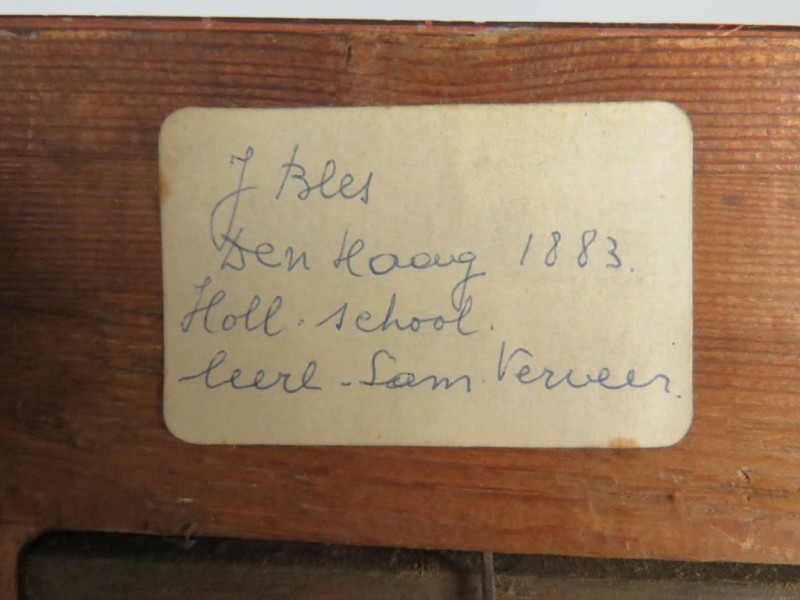 J Bles
Den Haag 1883.
Holl. school.
leerl. Sam Verveer.